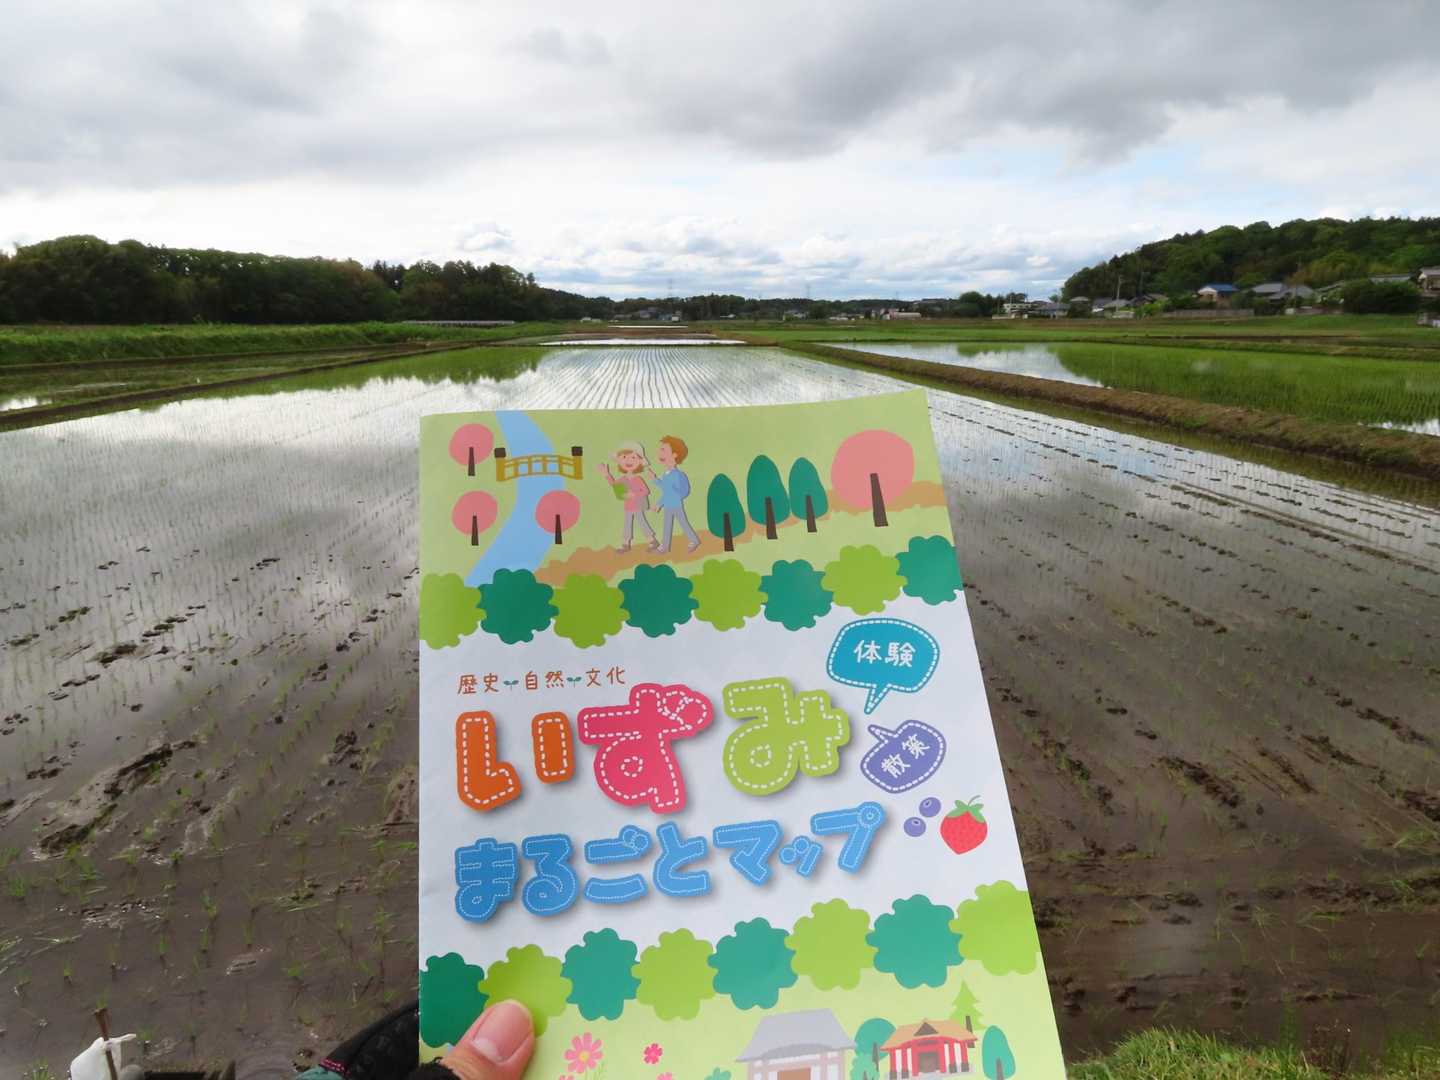 体験
歴史 自然 文化
いずみ
散策
まるごとマップ